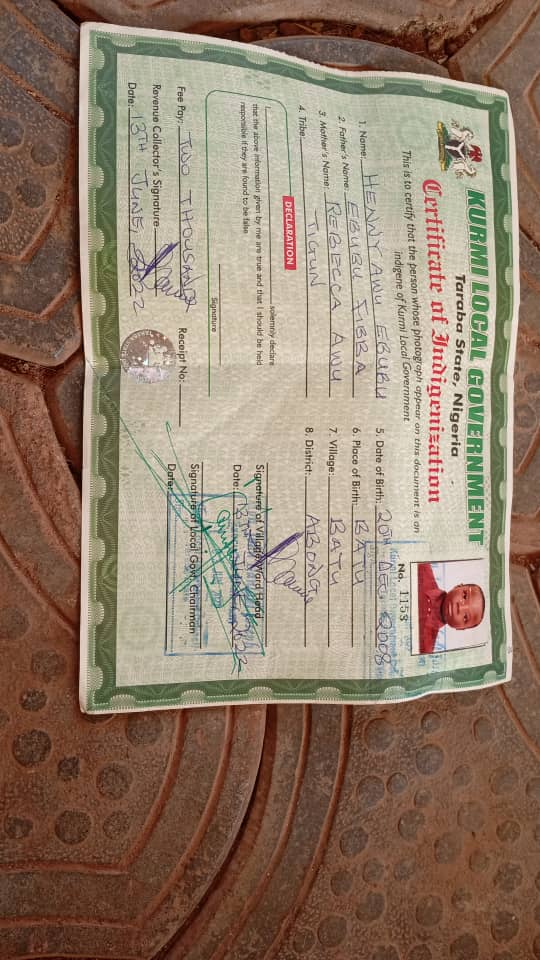 KURMI LOCAL GOVERNMENT
Taraba State, Nigeria
Certificate of Indigenization
This is to certify that the person whose photograph appear on this document is an
indigene of Kurmi Local Government
No. 1153
1. Name: HENNY AWU EBUBU
2. Father's Name: EBUBU FIBBA
3. Mother's Name: REBECCA AWU
4. Tribe: TIGUN
5. Date of Birth: 20TH DEC 2008
6. Place of Birth: BATU
7. Village: BATU
8. District: ABONG
DECLARATION
I solemnly declare
that the above information given by me are true and that I should be held
responsible if they are found to be false
Signature
Signature of Village/Ward Head
Date:
Fee Pay: TWO THOUSAND
Receipt No:
Revenue Collector's Signature
Signature of Local Govt. Chairman
Date: 13TH JUNE, 2022
Date: